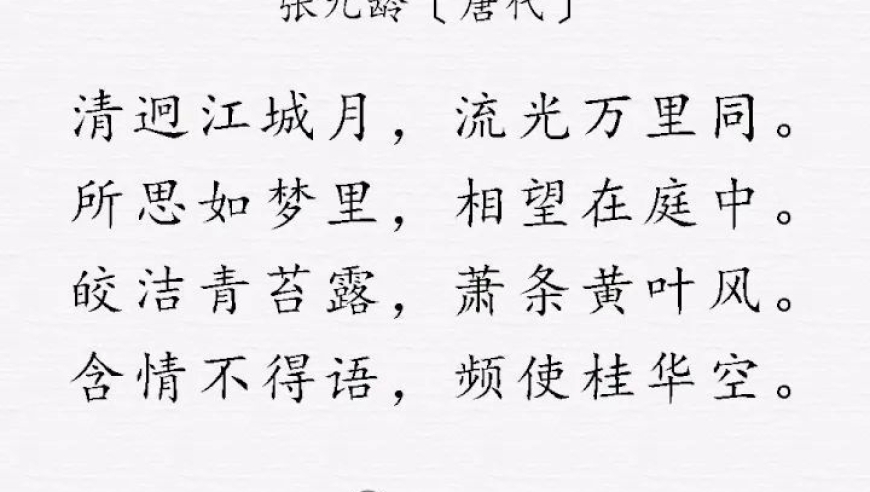 张九龄〔唐代〕
清迥江城月，流光万里同。
所思如梦里，相望在庭中。
皎洁青苔露，萧条黄叶风。
含情不得语，频使桂华空。